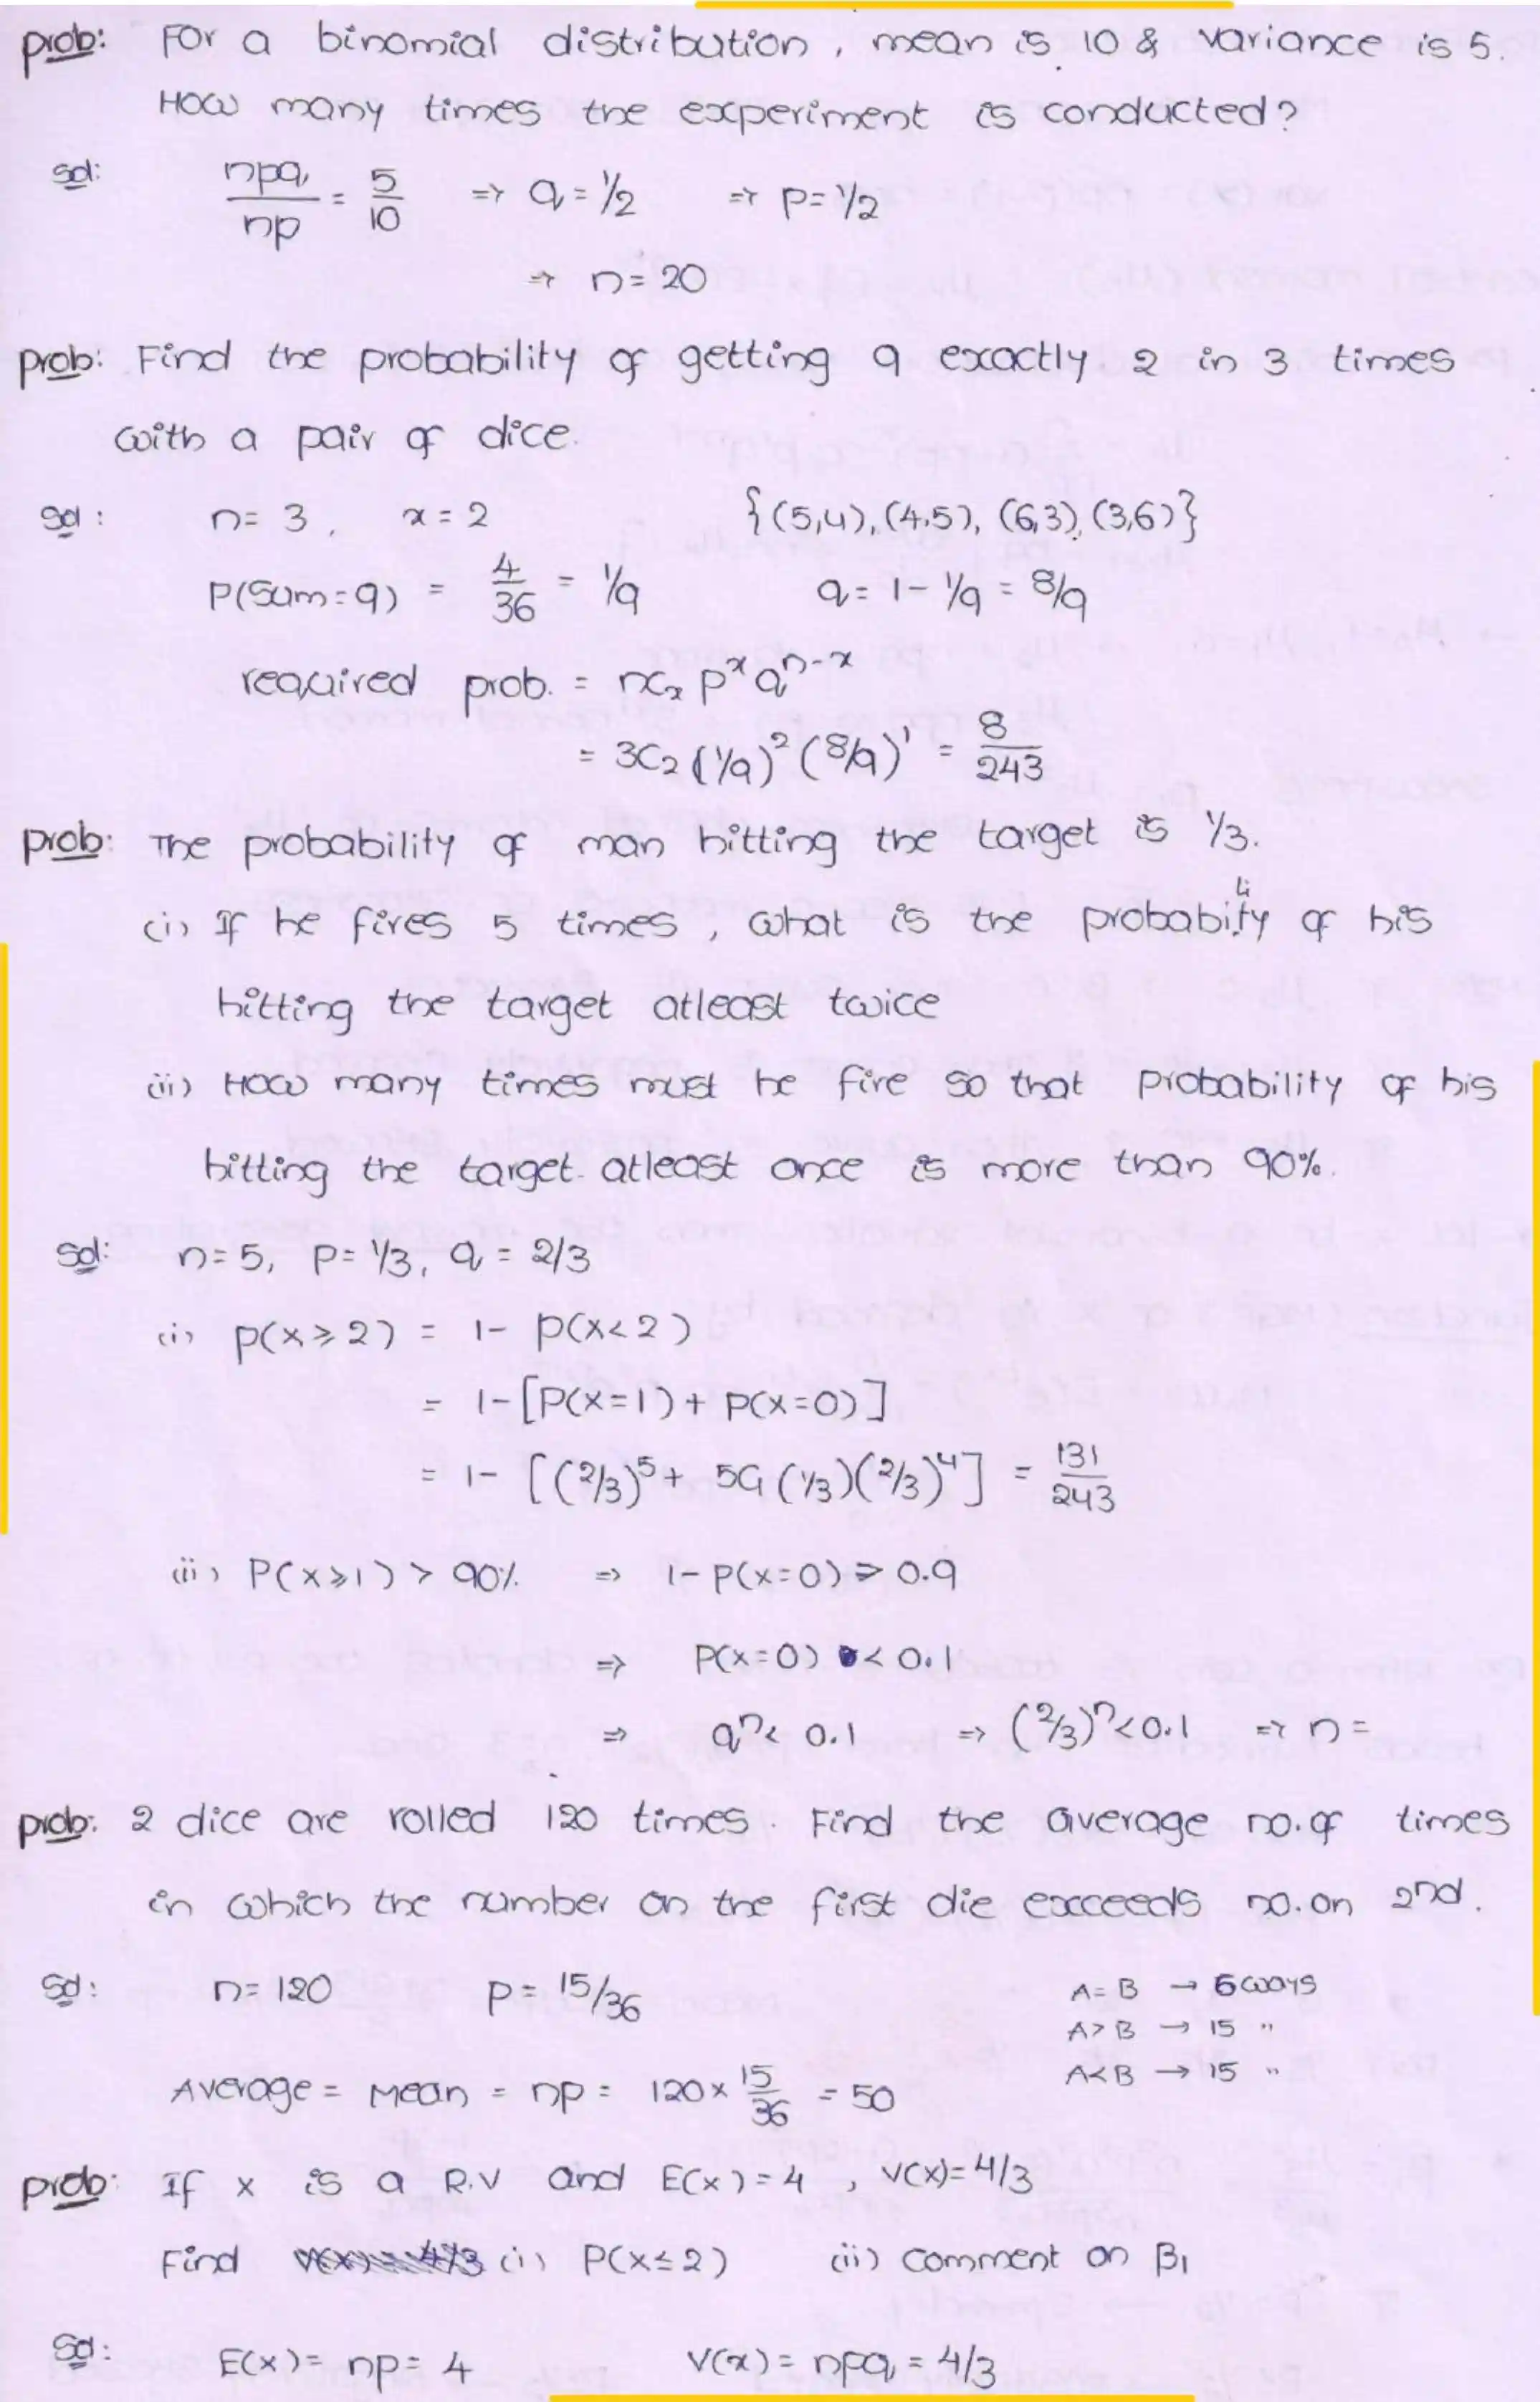 prob: For a binomial distribution, mean is 10 & variance is 5.
How many times the experiment is conducted?
sol: npq/np = 5/10 ⇒ q = 1/2 ⇒ p = 1/2
⇒ n = 20
prob: Find the probability of getting 9 exactly 2 in 3 times
with a pair of dice.
sol: n = 3, x = 2 {(5,4), (4,5), (6,3), (3,6)}
P(Sum = 9) = 4/36 = 1/9 q = 1 - 1/9 = 8/9
required prob. = nCₓ pˣ qⁿ⁻ˣ
= 3C₂ (1/9)² (8/9)¹ = 8/243
prob: The probability of man hitting the target is 1/3.
(i) If he fires 5 times, what is the probability of his
hitting the target atleast twice
(ii) How many times must he fire so that probability of his
hitting the target atleast once is more than 90%.
sol: n = 5, p = 1/3, q = 2/3
(i) P(x ≥ 2) = 1 - P(x < 2)
= 1 - [P(x = 1) + P(x = 0)]
= 1 - [(2/3)⁵ + 5C₁ (1/3)(2/3)⁴] = 131/243
(ii) P(x ≥ 1) > 90% ⇒ 1 - P(x = 0) > 0.9
⇒ P(x = 0) < 0.1
⇒ qⁿ < 0.1 ⇒ (2/3)ⁿ < 0.1 ⇒ n =
prob: 2 dice are rolled 120 times. Find the average no. of times
in which the number on the first die exceeds no. on 2nd.
Sol: n = 120 p = 15/36 A = B → 6 ways
A > B → 15 "
A < B → 15 "
Average = Mean = np = 120 × 15/36 = 50
prob: If x is a R.V and E(x) = 4, V(x) = 4/3
Find (i) P(x ≤ 2) (ii) comment on β₁
Sol: E(x) = np = 4 V(x) = npq = 4/3